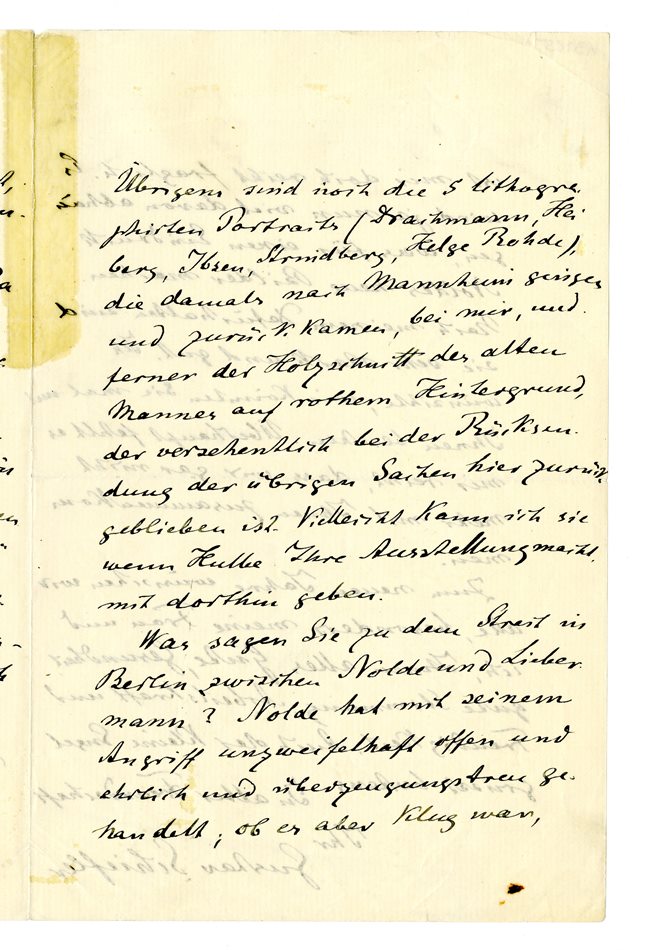 Übrigens sind noch die 5 lithogra-
phirten Portraits (Drachmann, Hei
berg, Ibsen, Strindberg, Helge Rohde),
die damals nach Mannheim gingen
und zurück kamen, bei mir, und
ferner der Holzschnitt des alten
Mannes auf rothem Hintergrund,
der versehentlich bei der Rücksen-
dung der übrigen Sachen hier zurück-
geblieben ist. Vielleicht kann ich sie
wenn Hulbe Ihre Ausstellung macht,
mit dorthin geben.
Was sagen Sie zu dem Streit in
Berlin zwischen Nolde und Lieber-
mann? Nolde hat mit seinem
Angriff unzweifelhaft offen und
ehrlich und überzeugungstreu ge-
handelt; ob es aber klug war,